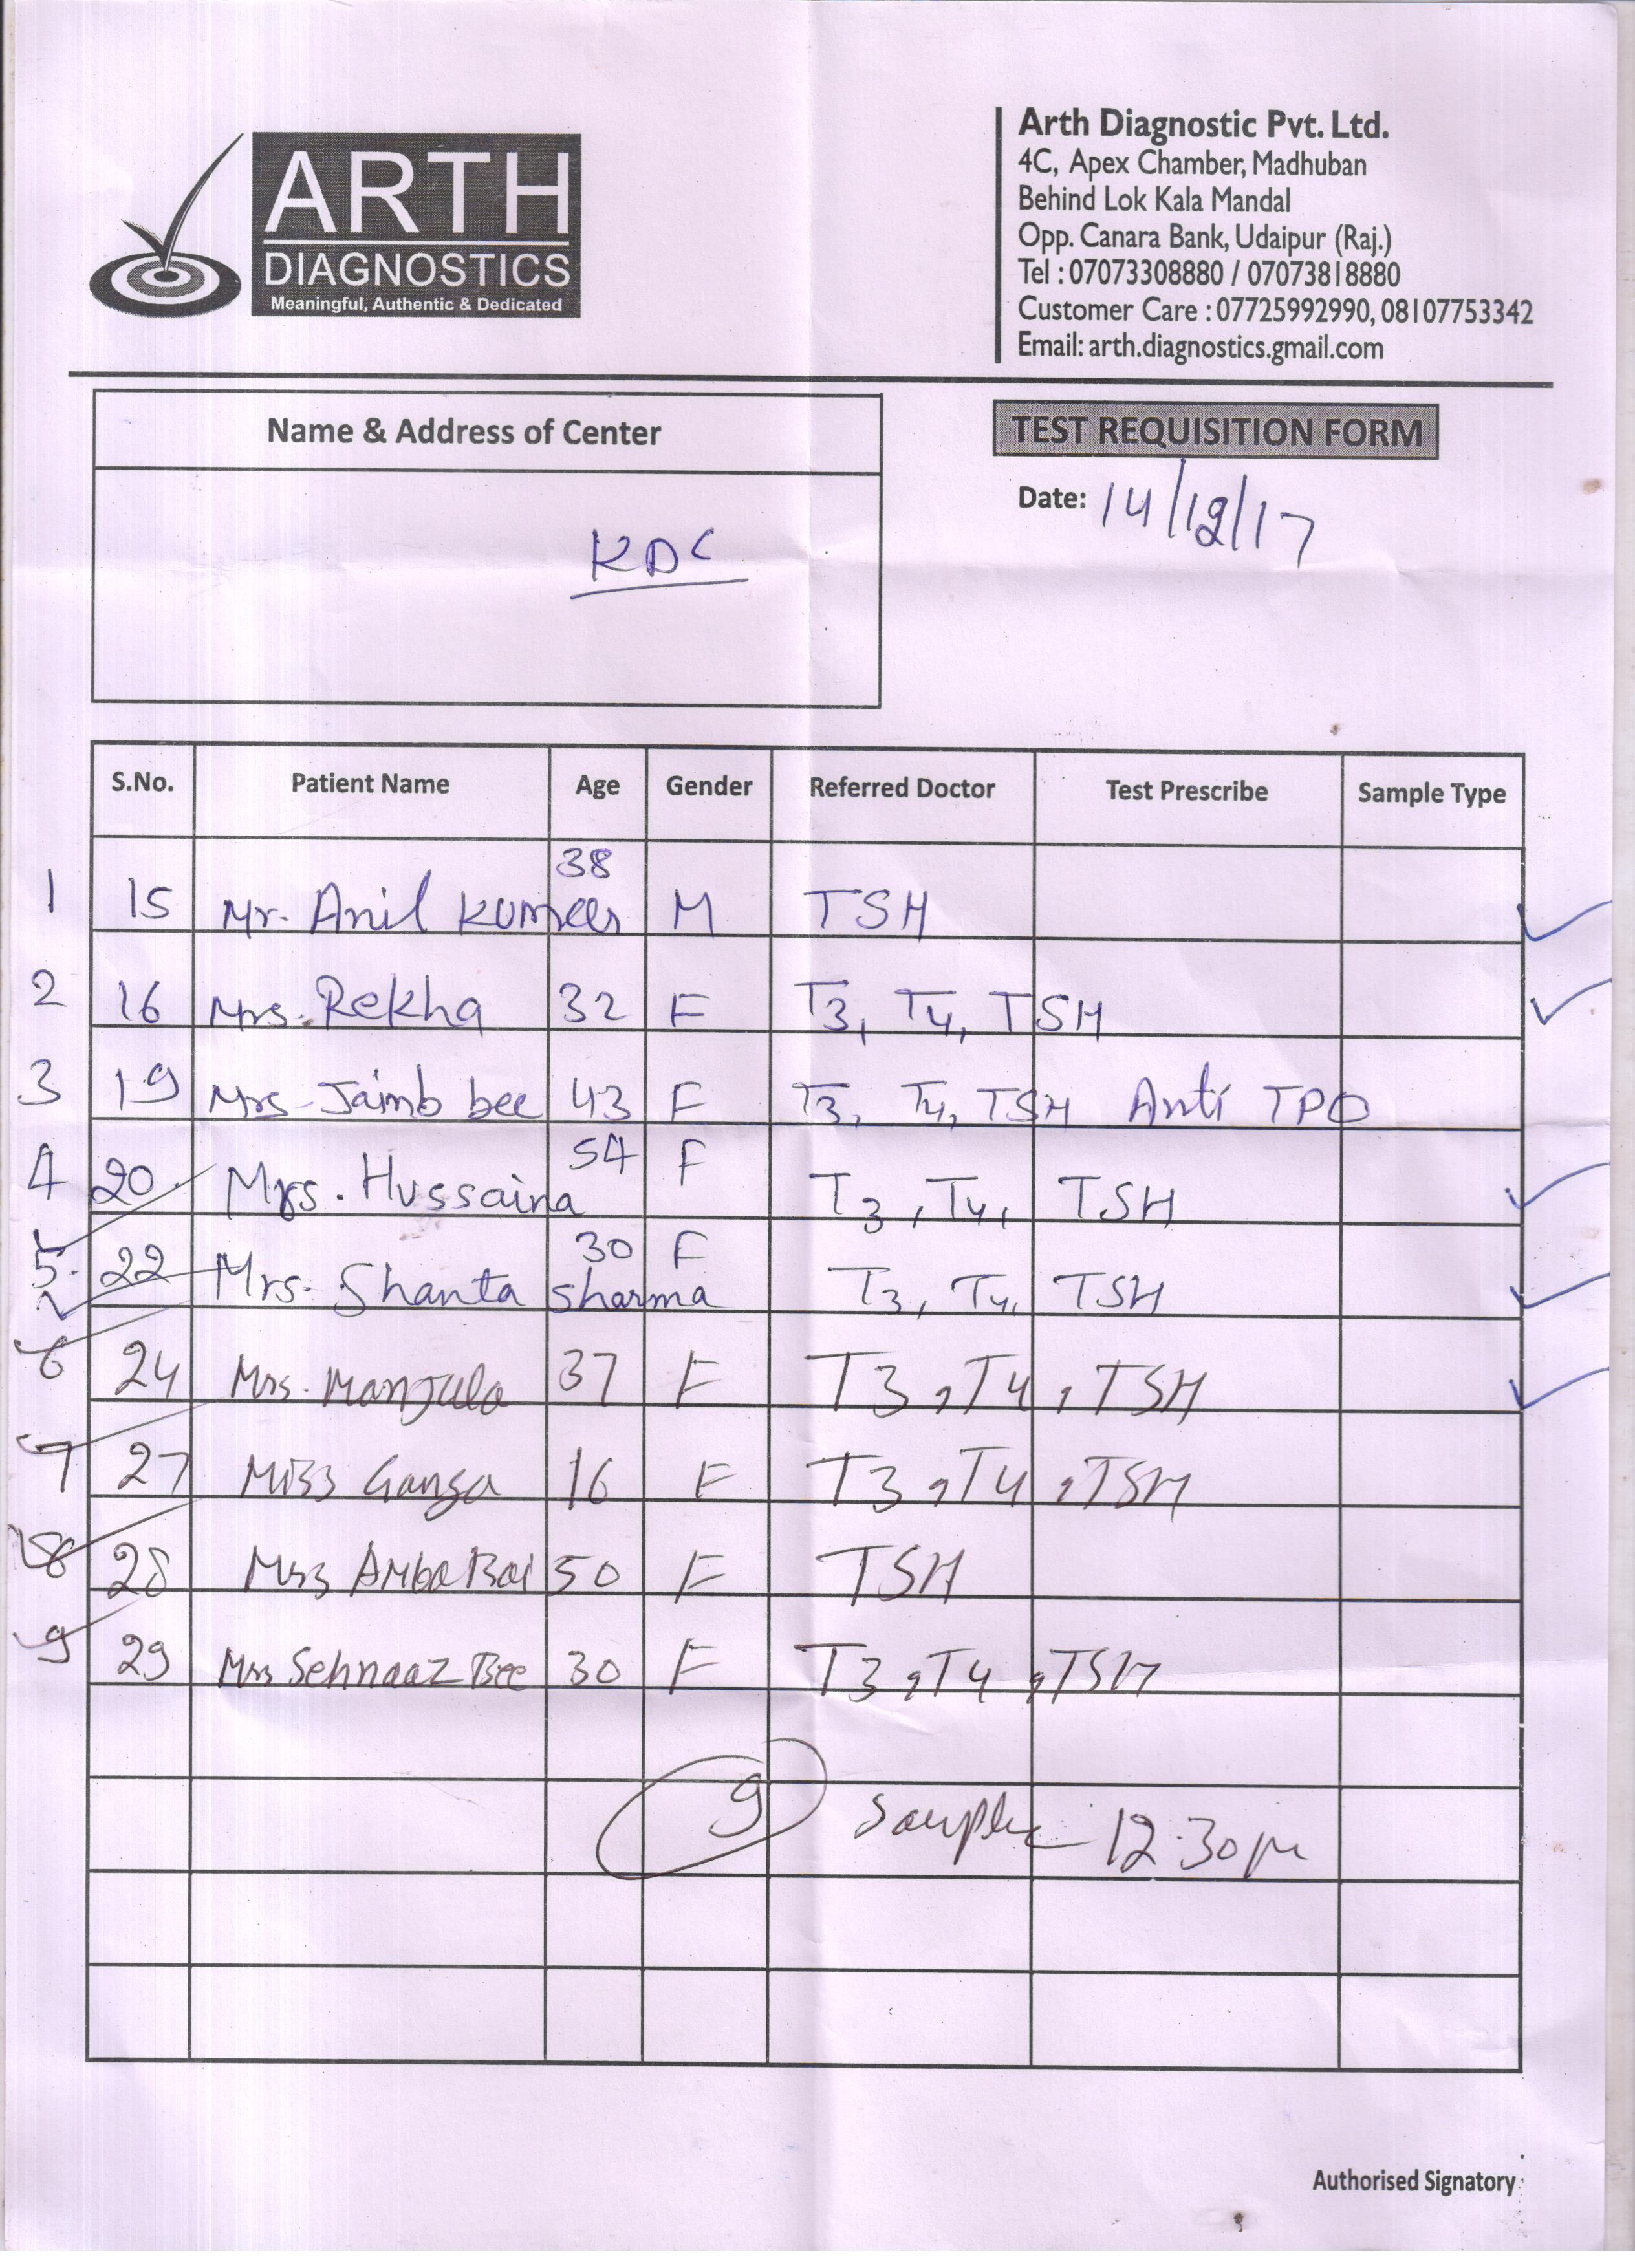 ARTH
DIAGNOSTICS
Meaningful, Authentic & Dedicated
Arth Diagnostic Pvt. Ltd.
4C, Apex Chamber, Madhuban
Behind Lok Kala Mandal
Opp. Canara Bank, Udaipur (Raj.)
Tel : 07073308880 / 07073818880
Customer Care : 07725992990, 08107753342
Email: arth.diagnostics.gmail.com
Name & Address of Center
KDC
TEST REQUISITION FORM
Date: 14/12/17
S.No. Patient Name Age Gender Referred Doctor Test Prescribe Sample Type
1 15 Mr. Anil Kumar 38 M TSH
2 16 Mrs. Rekha 32 F T3, T4, TSH
3 19 Mrs. Jainb bee 43 F T3, T4, TSH Anti TPO
4 20. Mrs. Hussaina 54 F T3, T4, TSH
5. 22 Mrs. Shanta Sharma 30 F T3, T4, TSH
6 24 Mrs. Manjula 37 F T3, T4, TSH
7 27 Miss Ganga 16 F T3, T4, TSH
8 28 Mrs Amba Bai 50 F TSH
9 29 Mrs Sehnaaz Bee 30 F T3, T4, TSH
9 Sample 12:30 pm
Authorised Signatory